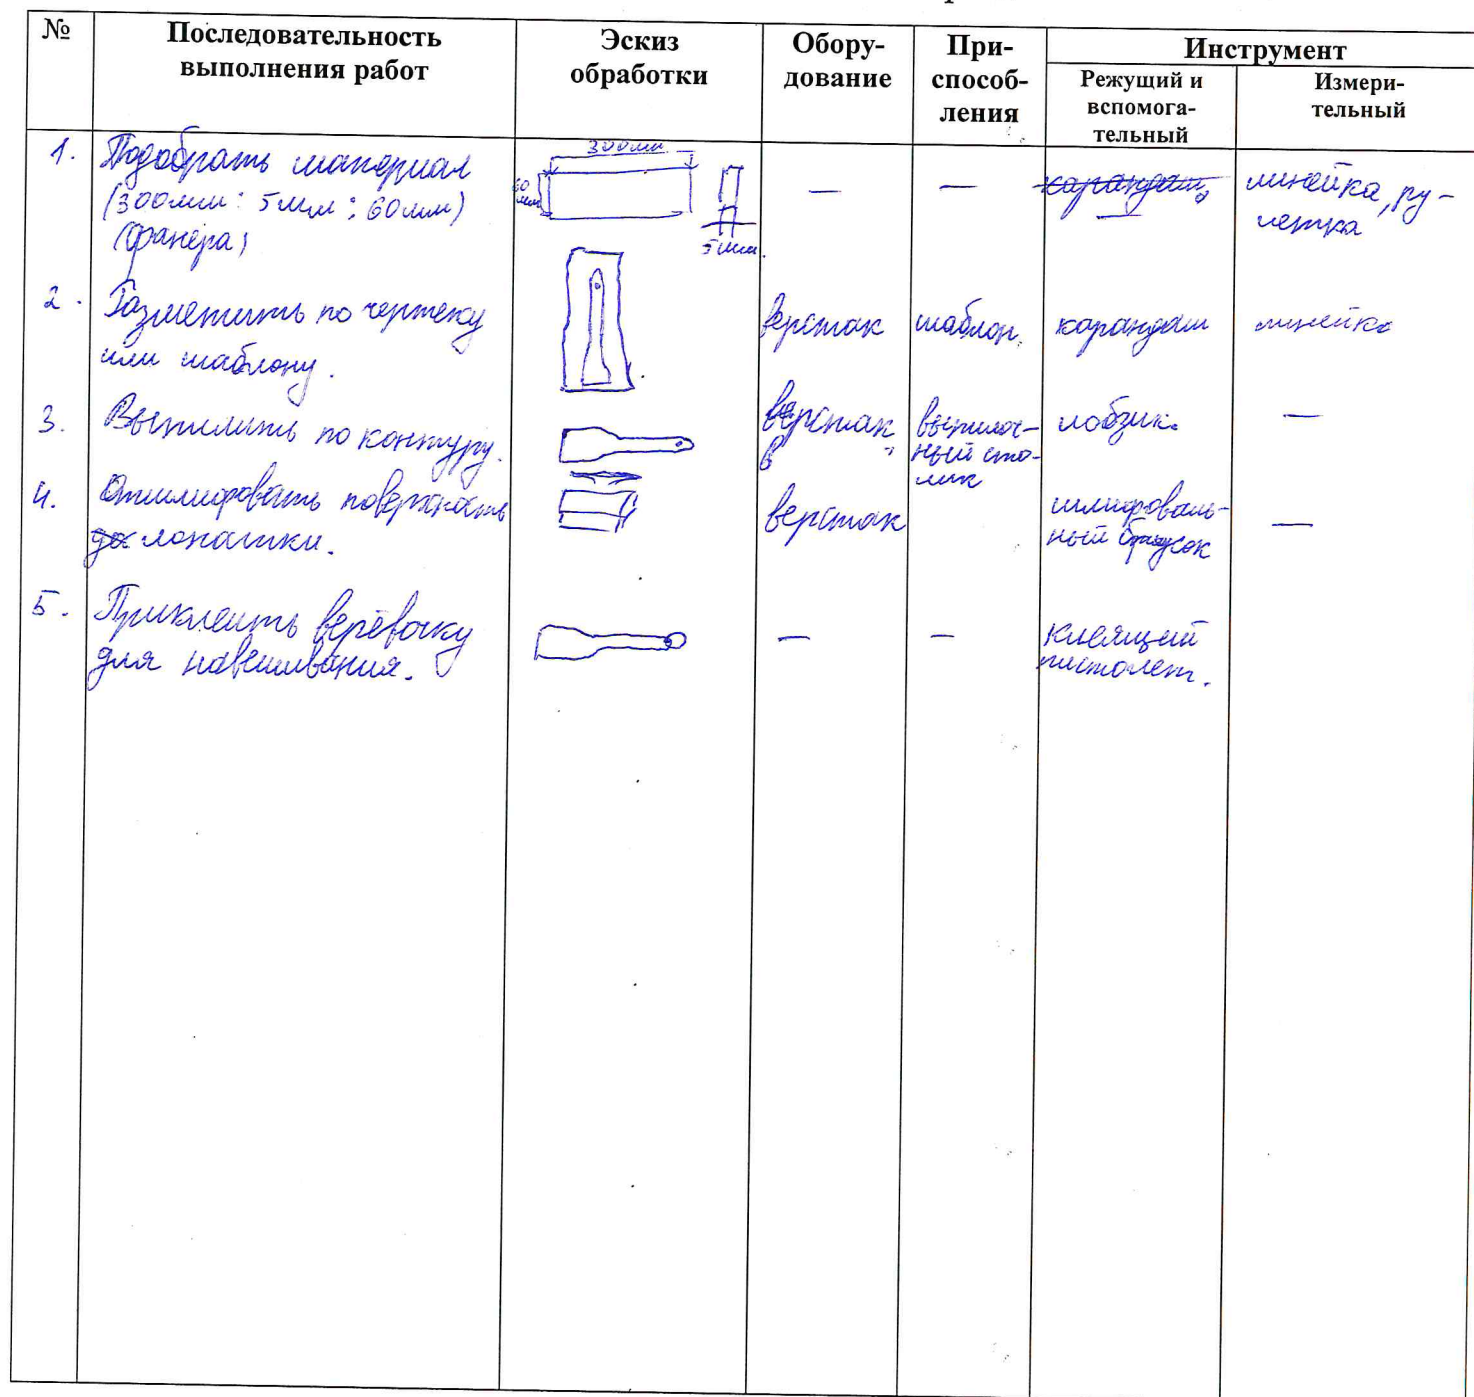 №
Последовательность
выполнения работ
Эскиз
обработки
Обору-
дование
При-
способ-
ления
Инструмент
Режущий и
вспомога-
тельный
Измери-
тельный
1.
Подобрать материал
(300мм : 5мм ; 60мм)
(фанера)
300мм
60
мм
5мм.
—
—
карандаш,
—
линейка, ру-
летка
2.
Разметить по чертежу
или шаблону.
верстак
шаблон.
карандаш
линейка
3.
Выпилить по контуру.
верстак
в
выпилоч-
ный сто-
лик
лобзик.
—
4.
Отшлифовать поверхность
до лопатки.
верстак
шлифоваль-
ный брусок
—
5.
Приклеить верёвочку
для навешивания.
—
—
клеящий
пистолет.